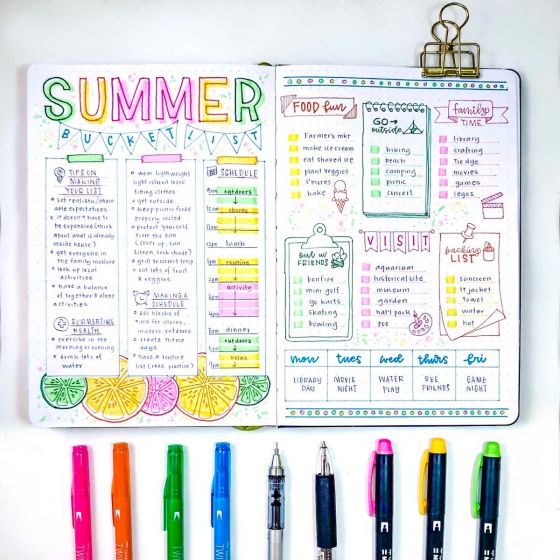 SUMMER
BUCKET LIST
TIPS ON
MAKING
YOUR LIST
set realistic/attain
able expectations
it doesn't have to
be expensive (think
about what is already
inside house)
get everyone in
the family involved
look up local
activities
have a balance
of together & alone
activities
SUMMERTIME
HEALTH
exercise in the
morning or evening
drink lots of
water
wear lightweight
light colored loose
fitting clothes
get outside
keep picnic foods
properly cooled
protect yourself
from the sun
(cover up, sun
screen, seek shade)
grill to correct temp
eat lots of fruit
& veggies
MAKING A
SCHEDULE
set blocks of
time for chores,
meals, outdoors
create theme
days
have a routine
SCHEDULE
9am outdoors
chores
12pm lunch
routine
activity
dinner
outdoors
relax
FOOD fun
farmer's mkt
make ice cream
eat shaved ice
plant veggies
s'mores
bake
GO→
outside
hiking
beach
camping
picnic
concert
family
TIME
library
crafting
tie dye
movies
games
legos
out w/
FRIENDS
bonfire
mini golf
go karts
skating
bowling
VISIT
aquarium
historical site
museum
garden
nat'l park
zoo
packing
LIST
sunscreen
lt jacket
towel
water
hat
mon tues wed thurs fri
LIBRARY MOVIE WATER SEE GAME
DAY NIGHT PLAY FRIENDS NIGHT